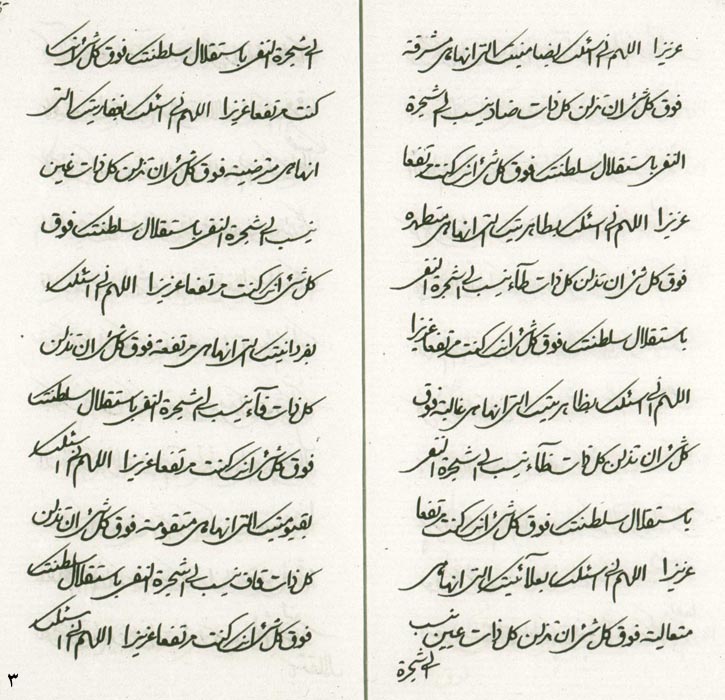 عزيزا اللهم اني اسئلك بضامنيتك التي انها هي مشرقة
فوق كل شئ ان تذلن كل ذات ضاد ينسب الى شجرة
النفي باستقلال سلطنتك فوق كل شئ انك كنت مرتفعا
عزيزا اللهم اني اسئلك بطاهريتك التي انها هي متطهرة
فوق كل شئ ان تذلن كل ذات طآء ينسب الى شجرة النفي
باستقلال سلطنتك فوق كل شئ انك كنت مرتفعا عزيزا
اللهم اني اسئلك بظاهريتك التي انها هي غالبة فوق
كل شئ ان تذلن كل ذات ظآء ينسب الى شجرة النفي
باستقلال سلطنتك فوق كل شئ انك كنت مرتفعا
عزيزا اللهم اني اسئلك بعلائيتك التي انها هي
متعالية فوق كل شئ ان تذلن كل ذات عين ينسب
الى شجرة
الى شجرة النفي باستقلال سلطنتك فوق كل شئ انك
كنت مرتفعا عزيزا اللهم اني اسئلك بغفاريتك التي
انها هي فوق كل شئ ان تذلن كل ذات غين
ينسب الى شجرة النفي باستقلال سلطنتك فوق
كل شئ انك كنت مرتفعا عزيزا اللهم اني اسئلك
بفردانيتك التي انها هي مرتفعة فوق كل شئ ان تذلن
كل ذات فآء ينسب الى شجرة النفي باستقلال سلطنتك
فوق كل شئ انك كنت مرتفعا عزيزا اللهم اني اسئلك
بقيوميتك التي انها هي متقومة فوق كل شئ ان تذلن
كل ذات قاف ينسب الى شجرة النفي باستقلال سلطنتك
فوق كل شئ انك كنت مرتفعا عزيزا اللهم اني اسئلك
٣